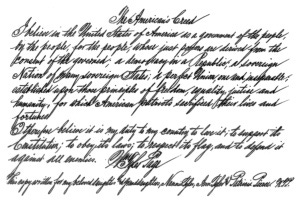 The American's Creed
I believe in the United States of America as a government of the people,
by the people, for the people, whose just powers are derived from the
consent of the governed; a democracy in a Republic, a sovereign
Nation of many sovereign States; a perfect Union, one and inseparable;
established upon those principles of freedom, equality, justice, and
humanity, for which American Patriots sacrificed their lives and
fortunes
I therefore believe it is my duty to my country to love it; to support its
Constitution; to obey its laws; to respect its flag; and to defend it
against all enemies.
This copy written for my beloved daughter